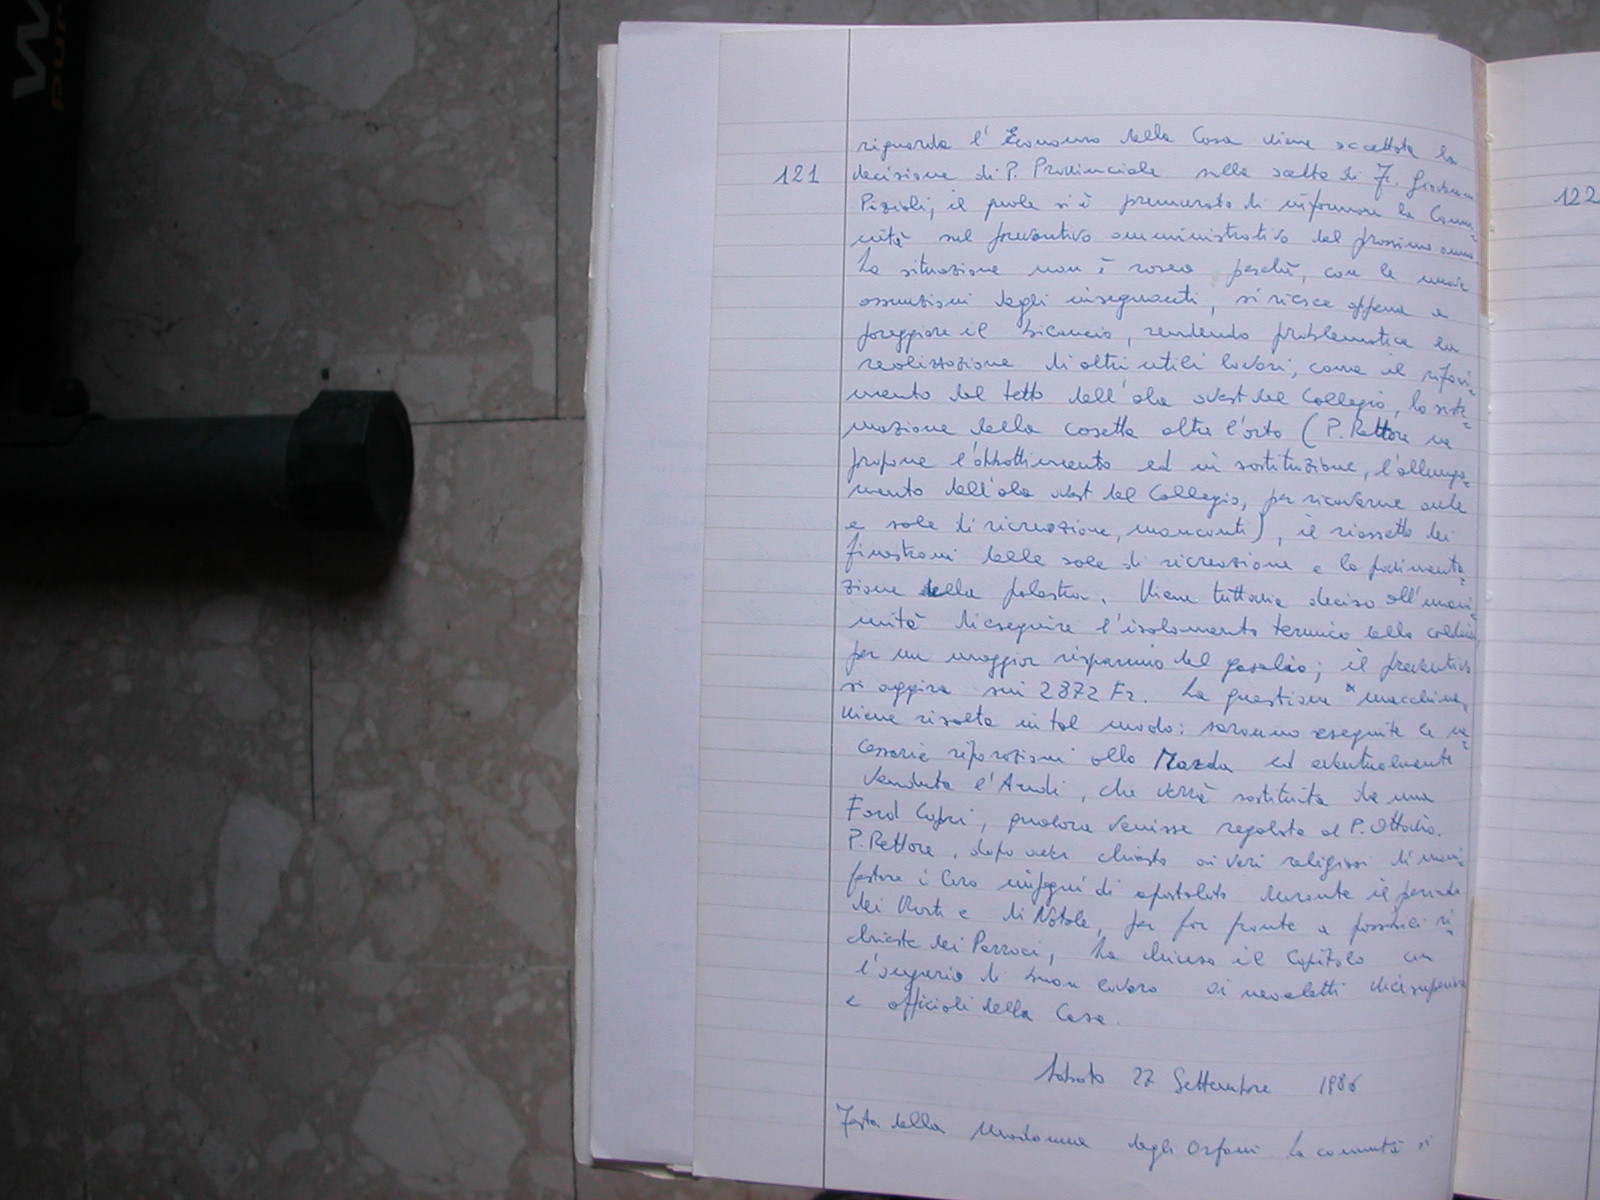 121
122
riguarda l'Economo della Casa viene accettata la
decisione di P. Provinciale sulla scelta di F. Giovanni
Pizioli, il quale si è premurato di informare la Comu=
nità sul preventivo amministrativo del prossimo anno.
La situazione non è rosea perché, con le nuove
assunzioni degli insegnanti, si riesce appena a
pareggiare il bilancio, rendendo problematica la
realizzazione di altri utili lavori, come il rifaci=
mento del tetto dell'ala ovest del Collegio, la siste=
mazione della casetta oltre l'orto (P. Rettore ne
propone l'abbattimento ed in sostituzione, l'allunga=
mento dell'ala ovest del Collegio, per ricavarne aule
e sale di ricreazione, mancanti), il riassetto dei
finestroni delle sale di ricreazione e la pavimenta=
zione della palestra. Viene tuttavia deciso all'unani=
mità di eseguire l'isolamento termico della caldaia
per un maggior risparmio del gasolio; il preventivo
si aggira sui 2872 Fr. La questione "macchine"
viene risolta in tal modo: saranno eseguite le ne=
cessarie riparazioni alla Mazda ed eventualmente
venduta l'Audi, che verrà sostituita da una
Ford Capri, qualora venisse regalata al P. Ottavio.
P. Rettore, dopo aver chiesto ai vari religiosi di mani=
festare i loro impegni di apostolato durante il periodo
dei Morti e di Natale, per far fronte a possibili ri=
chieste dei Parroci, ha chiuso il Capitolo con
l'augurio di buon lavoro ai neoeletti
e officiali della Casa.
Sabato 27 Settembre 1986
Festa della Madonna degli Orfani. La comunità si